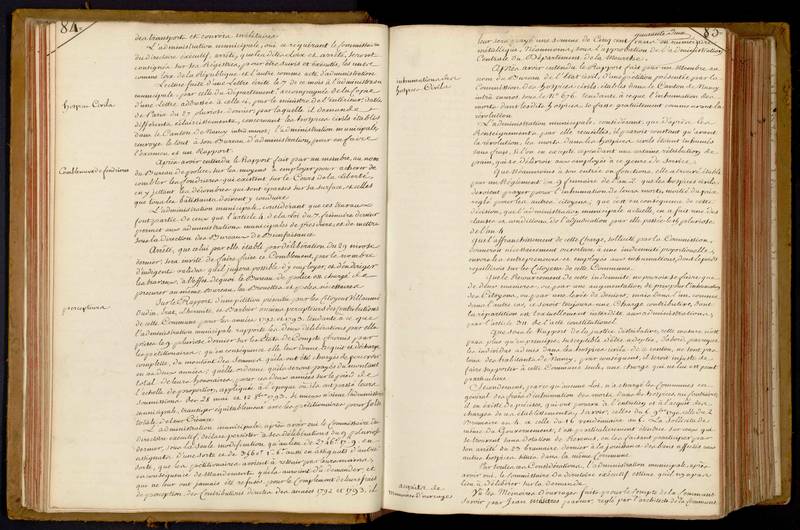 84.
des transports et convois militaires.
L'administration municipale, ouï ce requérant le Commissaire
du directoire exécutif, arrête, que les dites Loix et arrêté, seront
consignés sur ses Registres, pour être suivis et exécutés, les unes
comme loix de la République et l'autre comme acte d'administration
hospices Civils
Lecture faite d'une Lettre écrite le 7 de ce mois à l'administration
municipale, par celle du département, accompagnée de la copie
d'une lettre adressée à celle ci, par le ministre de l'intérieur, datée
de Paris du 27 pluviôse dernier, par laquelle il demande
différents éclaircissements, concernant les hospices civils établis
dans le Canton de Nancy intrà muros; l'administration municipale
renvoye le tout à son Bureau d'administration, pour en faire
l'examen et un Rapport.
Comblement de fondrières
Après avoir entendu le Rapport fait par un membre, au nom
du Bureau de police, sur les moyens à employer pour achever de
combler les fondrières qui existent sur le Cours de la Liberté
en y jettant les décombres qui sont épars sur sa surface, et celles
que tous les bâtissants doivent y conduire
L'administration municipale, considérant que ces travaux
font partie de ceux que l'article 4 de la Loi du 7. frimaire dernier
permet aux administrations municipales de prescrire, et de mettre
sous la direction des Bureaux de Bienfaisance.
Arrête, que celui par elle établi par délibération du 29 nivôse
dernier, sera invité de faire faire ce Comblement, par le nombre
d'indigents valides qu'il jugera possible d'y employer, et d'en diriger
les travaux, à l'effet de quoi le Bureau de police est chargé de
procurer au même Bureau, les Brouettes et pelles nécessaires
percepteurs
Sur le Rapport d'une pétition présentée par les Citoyens Villaumé
Oudin, Brat, Lhermite, et Barbier anciens percepteurs des Contributions
de cette Commune pour les années 1792 et 1793. tendante à ce que
l'administration municipale rapporte les deux délibérations par elle
prises le 9 pluviôse dernier sur les états de Compte fournis par
les pétitionnaires; qu'en conséquence elle leur donne acquit et décharge
complette, du montant des sommes qu'ils ont été chargés de percevoir
en ces deux années; qu'elle ordonne qu'ils seront payés du montant
total de leurs honoraires, pour ces deux années sur le pied de
l'échelle de proportion, appliquée à l'époque où ils ont passé leurs
soumissions des 28 mai et 12 7bre 1793. Si mieux n'aime l'administration
municipale, transiger équitablement avec les pétitionnaires pour solde
totale de leur Créance.
L'administration municipale, après avoir ouï le Commissaire du
directoire exécutif, déclare persister à ses délibérations du 9 pluviôse
dernier, sous la seule modification qu'au lieu de
assignats d'une sorte et de assignats d'autre
sorte, que les pétitionnaires auraient à
en conséquence de mandements qu'ils auraient dû demander, et
qui ne leur ont jamais été refusés, pour le Complément de leurs frais
de perception des Contributions directes des années 1792 et 1793. il
85.
leur sera payé une somme de Cinq cent quarante deux francs en numéraire
métallique, Néanmoins, sous l'approbation de l'administration
Centrale du Département de la Meurthe.
inhumation dans les
hospices Civils
Après avoir entendu le Rapport fait par un Membre au
nom du Bureau de l'Etat civil, d'une pétition présentée par la
Commission des hospices civils établis dans le Canton de Nancy
intrà muros, sous le N.° 676. tendante à ce que l'inhumation des
morts dans les dits hospices se fasse gratuitement comme avant la
révolution.
L'administration municipale, considérant que d'après les
Renseignements par elle recueillis, il paroît constant qu'avant
la révolution, les morts dans les hospices civils étaient inhumés
sans frais, si l'on en excepte cependant une certaine rétribution de
pain, qui se délivrait aux employés à ce genre de service.
Que Néanmoins à son entrée en fonctions, elle a trouvé établi
par un Règlement du 9 frimaire de l'an 2. que les hospices civils
devraient payer pour l'inhumation de leurs morts, moitié du prix
réglé pour les autres citoyens; que c'est en conséquence de cette
décision, que l'administration municipale actuelle, en a fait une des
clauses et conditions de l'adjudication par elle passée le pluviôse
de l'an 4.
Que l'affranchissement de cette Charge, sollicité par la Commission,
donneroit nécessairement ouverture à une indemnité proportionnelle,
envers les entrepreneurs et employés aux inhumations, dont le poids
rejailliroit sur les Citoyens de cette Commune.
Que le Recouvrement de cette indemnité ne pouvait se faire que
de deux manières, ou par une augmentation de prix pour l'inhumation
des Citoyens, ou par une levée de deniers, mais dans l'un, comme
dans l'autre cas, ce seroit toujours une Charge contributive, dont
la répartition est textuellement interdite aux administrations,
par l'article 311 de l'acte constitutionnel.
Que sous le Rapport de la justice distributive, cette mesure n'est
pas plus qu'en principe, susceptible d'être adoptée, d'abord, parceque
les individus admis dans les hospices civils de ce canton, ne sont pas
tous des habitants de Nancy, par conséquent, il seroit injuste de
faire supporter à cette Commune seule, une charge qui ne lui est point
particulière
Secondement, parce qu'aucune Loi, n'a chargé les Communes en
général des frais d'inhumation des morts dans les hospices, au contraire
il en existe de précises, qui ont pourvu à l'entretien et à l'acquit des
charges de ces établissements, Savoir; celles du 9 g.bre 1792. celle du 2
Messidor an 4. et celle du 16 vendémiaire an 5. La sollicitude
même du Gouvernement, s'est particulièrement étendue sur ceux qui
se trouvent sans dotation de Revenus, en les faisant participer par
son arrêté du 23 brumaire dernier à la jouissance des biens affectés aux
autres hospices situés dans la même Commune.
Par toutes ces Considérations, l'administration municipale, après
avoir ouï, le Commissaire du directoire exécutif estime qu'il n'y a pas
lieu à délibérer sur la demande.
acquits de
Mémoires d'ouvrages
Vu les Mémoires d'ouvrages faits pour le compte de la Commune
Savoir par Jean paveur, réglé par l'architecte de la Commune